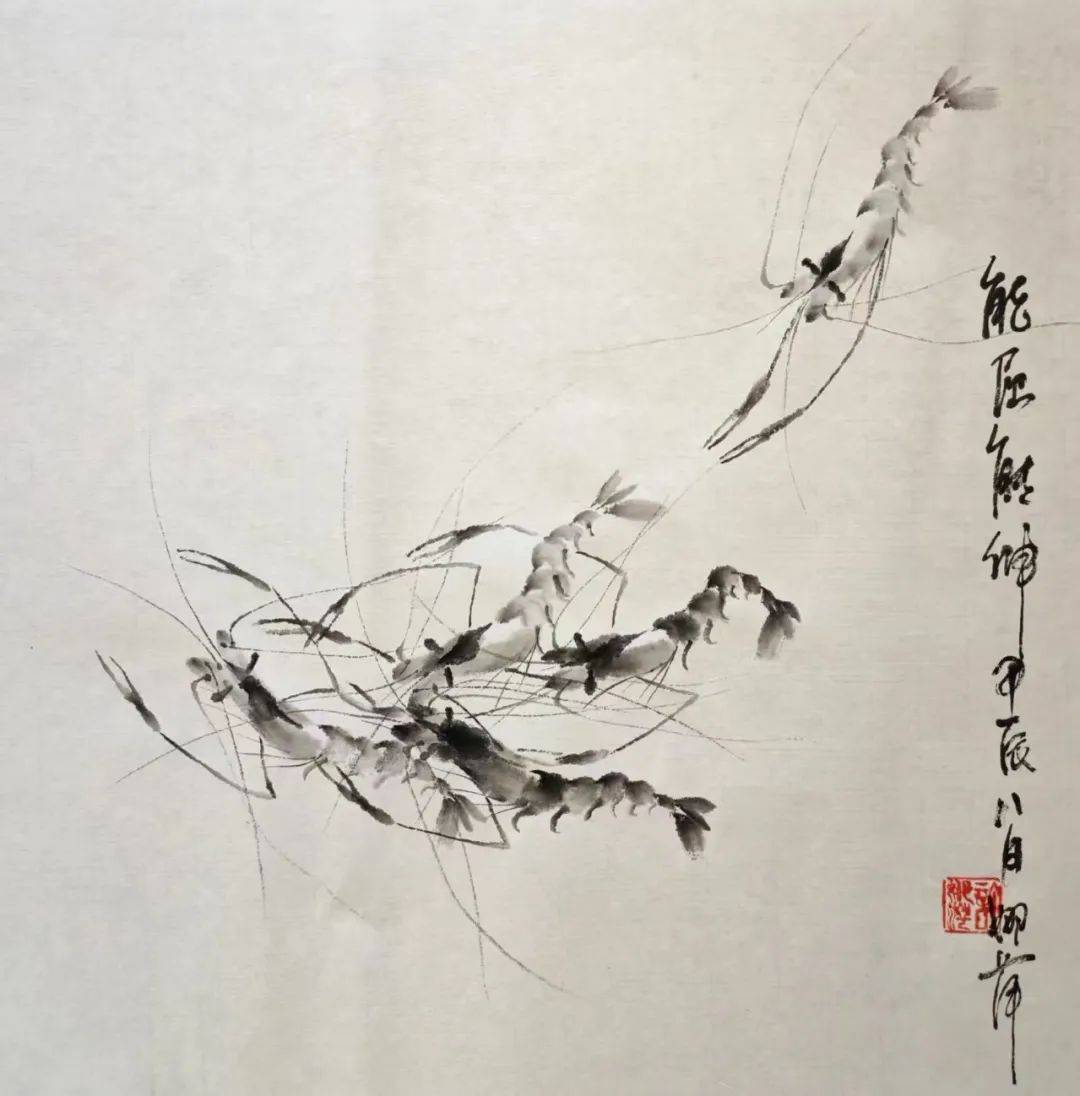 能屈能伸甲辰八月娜萍